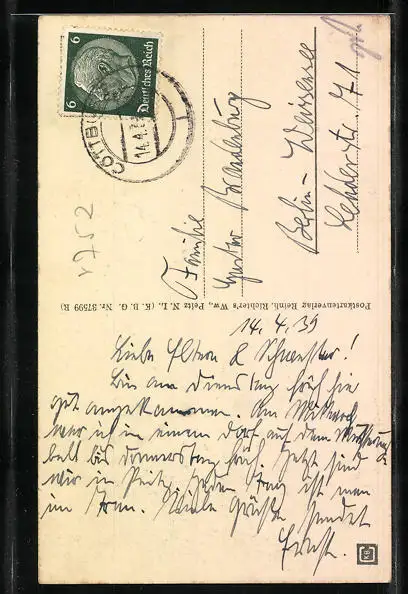 6 Deutsches Reich 6
COTTBUS
14.4.3
Familie
Gustav Brandenburg
Berlin-Weissensee
Lehderstr. 71
1752
Postkartenverlag Reinh. Richter's Ww., Peitz N. L. (K. B. G. Nr. 37599 R)
14. 4. 39
Liebe Eltern & Schwester!
Bin am Dienstag früh hie
gut angekommen. Am Mittwoch
war ich in einem Dorf auf dem
bett bis Donnerstag früh. Jetzt sind
wir in Peitz. Jeden Tag ist man
im Tran. Viele Grüße sendet
KB